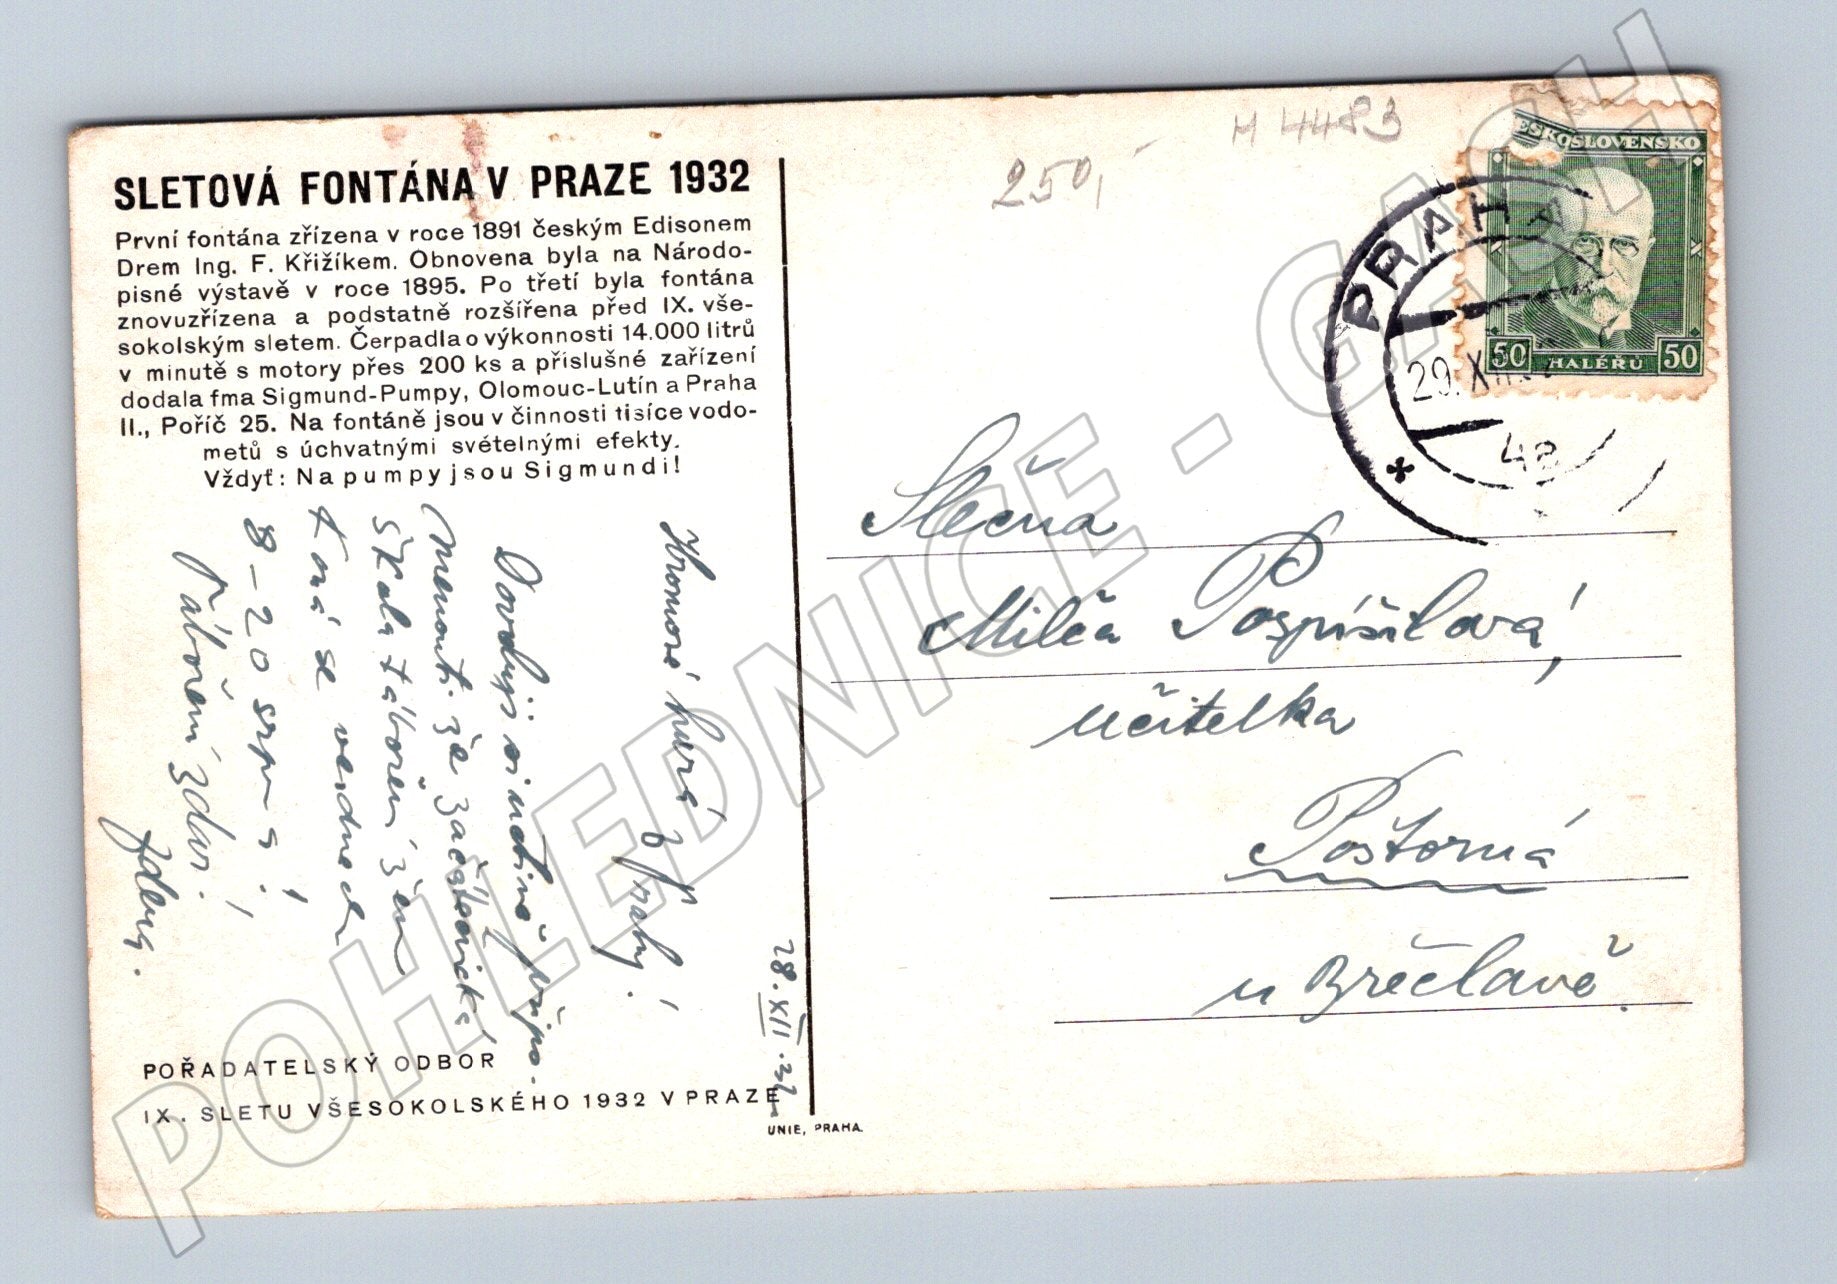 SLETOVÁ FONTÁNA V PRAZE 1932
První fontána zřízena v roce 1891 českým Edisonem
Drem Ing. F. Křižíkem. Obnovena byla na Národo-
pisné výstavě v roce 1895. Po třetí byla fontána
znovuzřízena a podstatně rozšířena před IX. vše-
sokolským sletem. Čerpadla o výkonnosti 14.000 litrů
v minutě s motory přes 200 ks a příslušné zařízení
dodala fma Sigmund-Pumpy, Olomouc-Lutín a Praha
II., Poříč 25. Na fontáně jsou v činnosti tisíce vodo-
metů s úchvatnými světelnými efekty.
Vždyť: Na pumpy jsou Sigmundi!
Hromové hurá
z Prahy!
Dovoluji si
že začátečnická
škola táboření žen
koná se
8-20 srpna!
Tábořem zdar!
28.XII.32
POŘADATELSKÝ ODBOR
IX. SLETU VŠESOKOLSKÉHO 1932 V PRAZE
UNIE, PRAHA.
M 4483
250,-
ČESKOSLOVENSKO
50 HALÉŘŮ 50
PRAHA
29.XII.
48
Slečna
Milča Pospíšilová,
učitelka
Poštorná
u Břeclavě.
POHLEDNICE - GABH